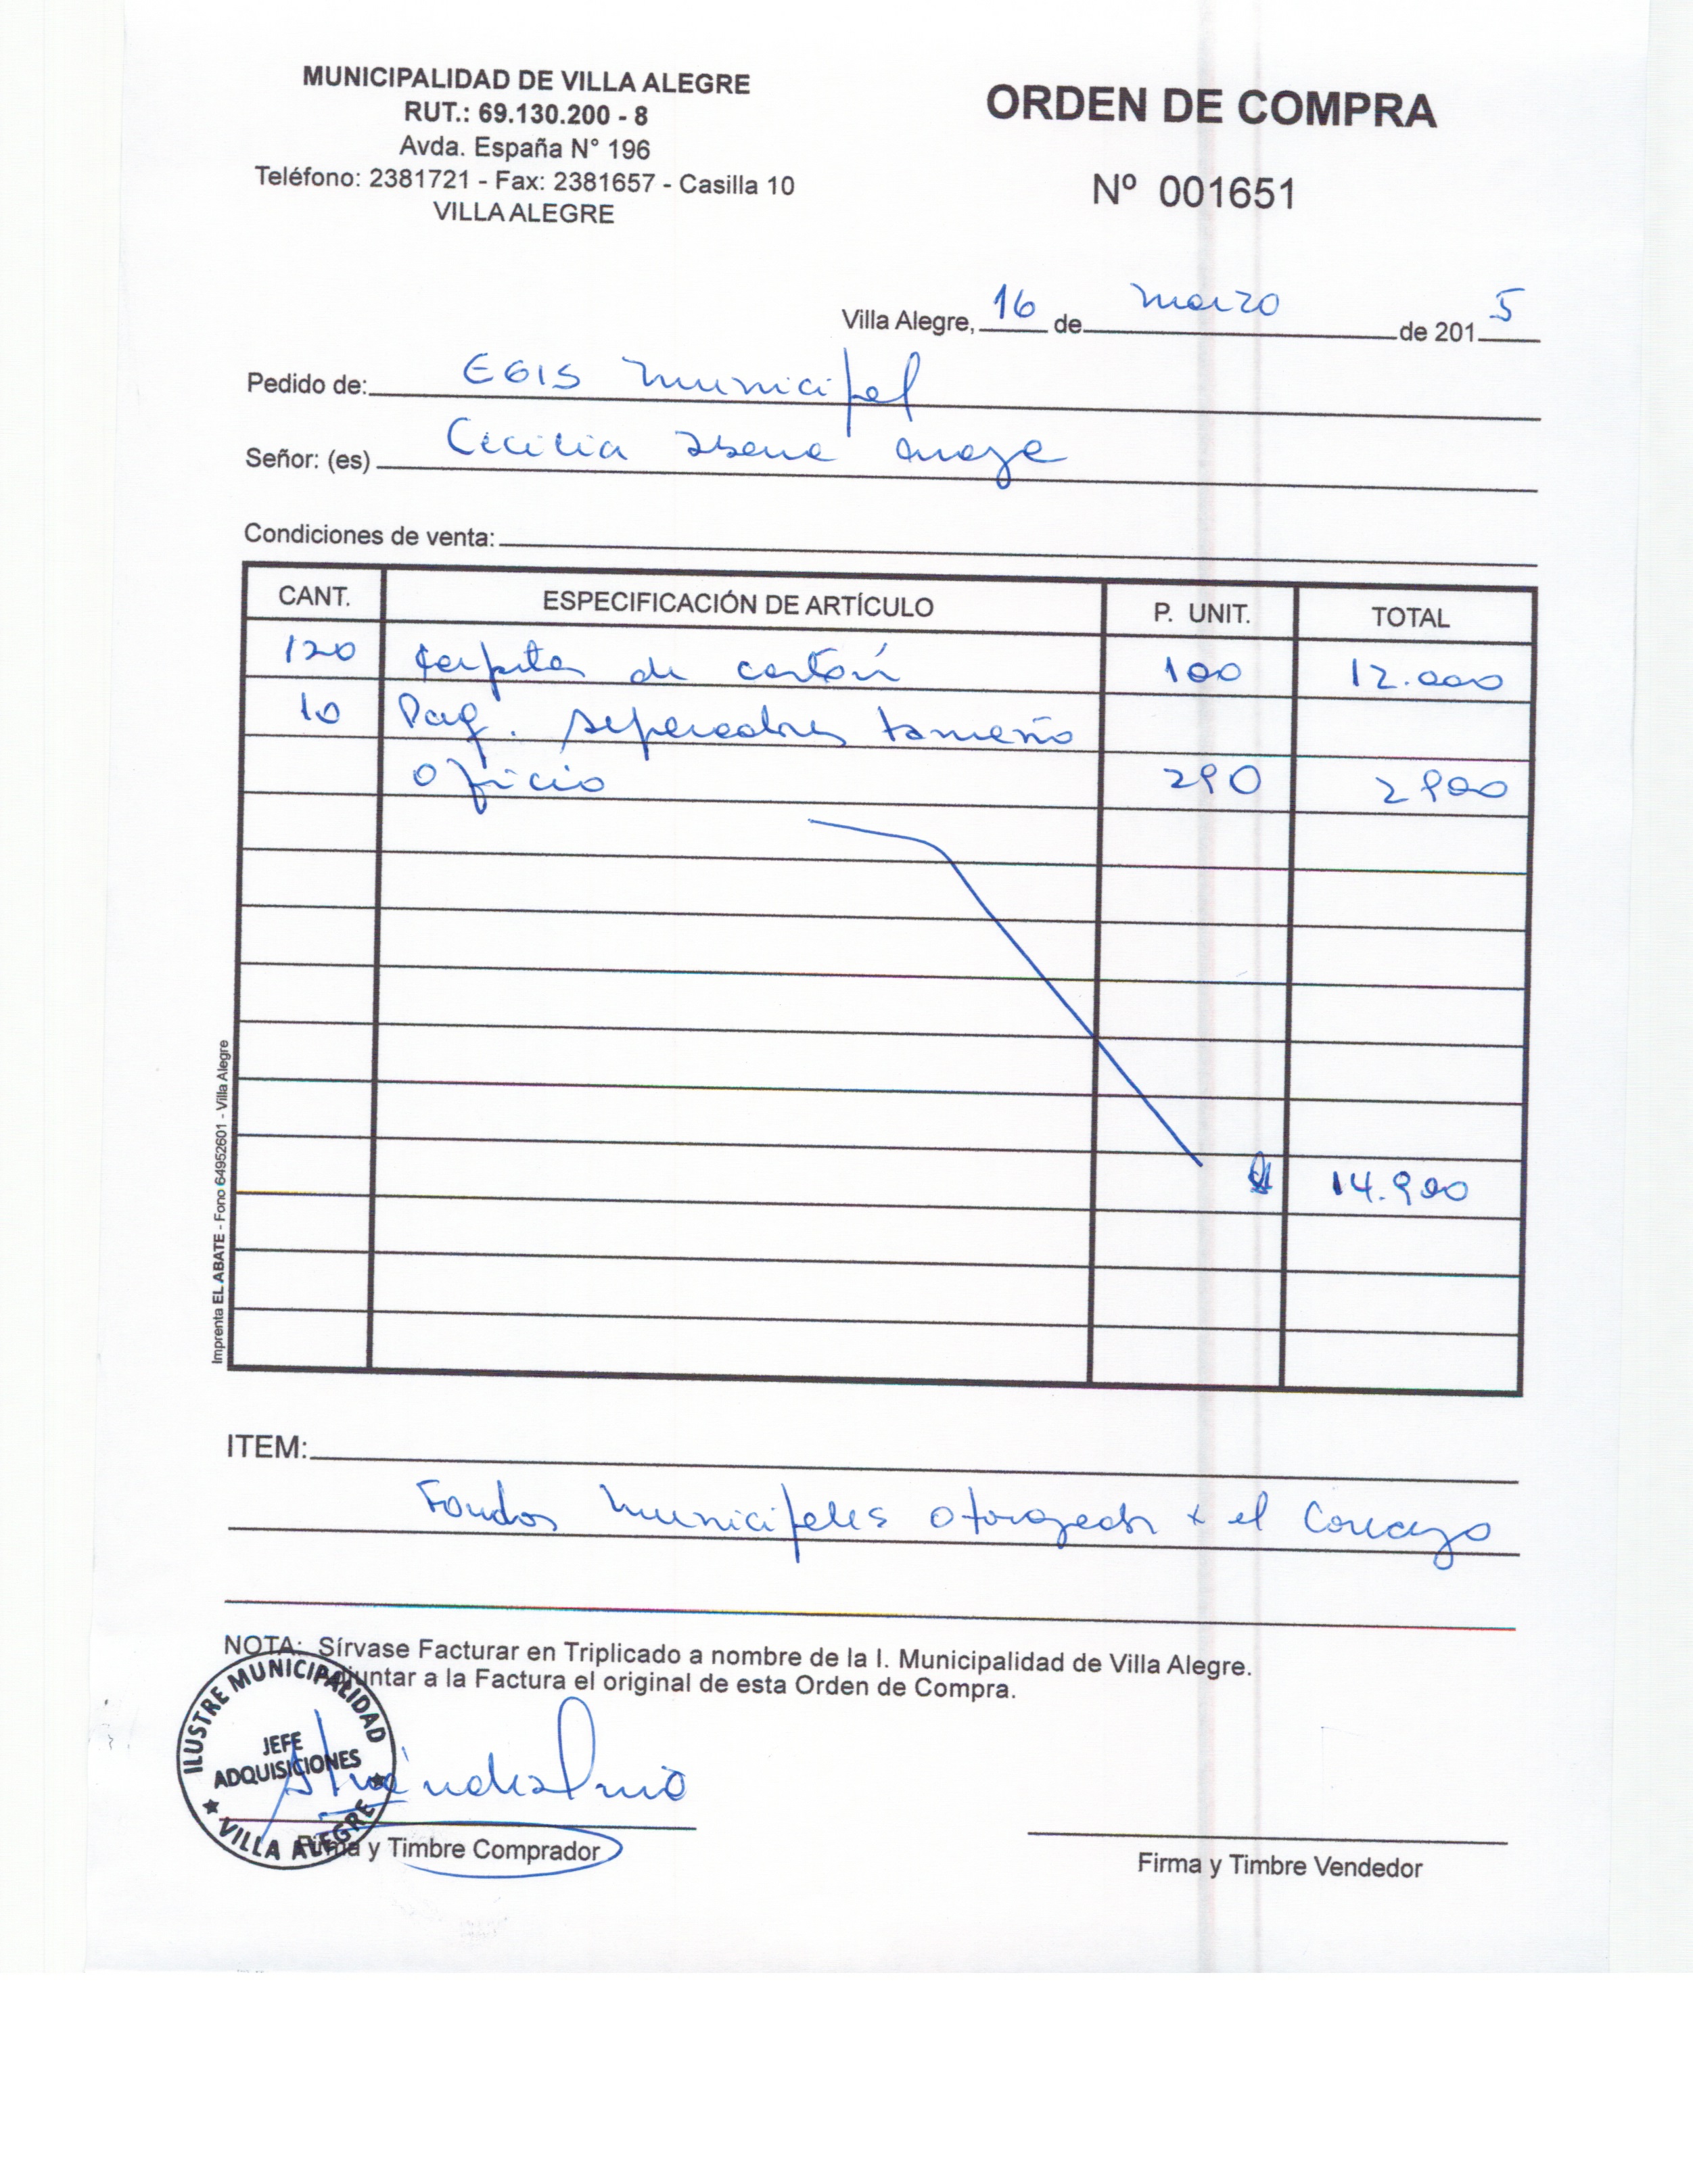 MUNICIPALIDAD DE VILLA ALEGRE
RUT.: 69.130.200 - 8
Avda. España N° 196
Teléfono: 2381721 - Fax: 2381657 - Casilla 10
VILLA ALEGRE
ORDEN DE COMPRA
Nº 001651
Villa Alegre, 16 de marzo de 2015
Pedido de: EGIS Municipal
Señor: (es) Cecilia
Condiciones de venta:
CANT. ESPECIFICACIÓN DE ARTÍCULO P. UNIT. TOTAL
120 de cartón 100 12.000
10 Paq. separadores tamaño
oficio 290 2900
$ 14.900
Imprenta EL ABATE - Fono 64952601 - Villa Alegre
ITEM:
Fondos Municipales x el Concejo
NOTA: Sírvase Facturar en Triplicado a nombre de la I. Municipalidad de Villa Alegre.
Adjuntar a la Factura el original de esta Orden de Compra.
ILUSTRE MUNICIPALIDAD
JEFE
ADQUISICIONES
VILLA ALEGRE
Firma y Timbre Comprador
Firma y Timbre Vendedor